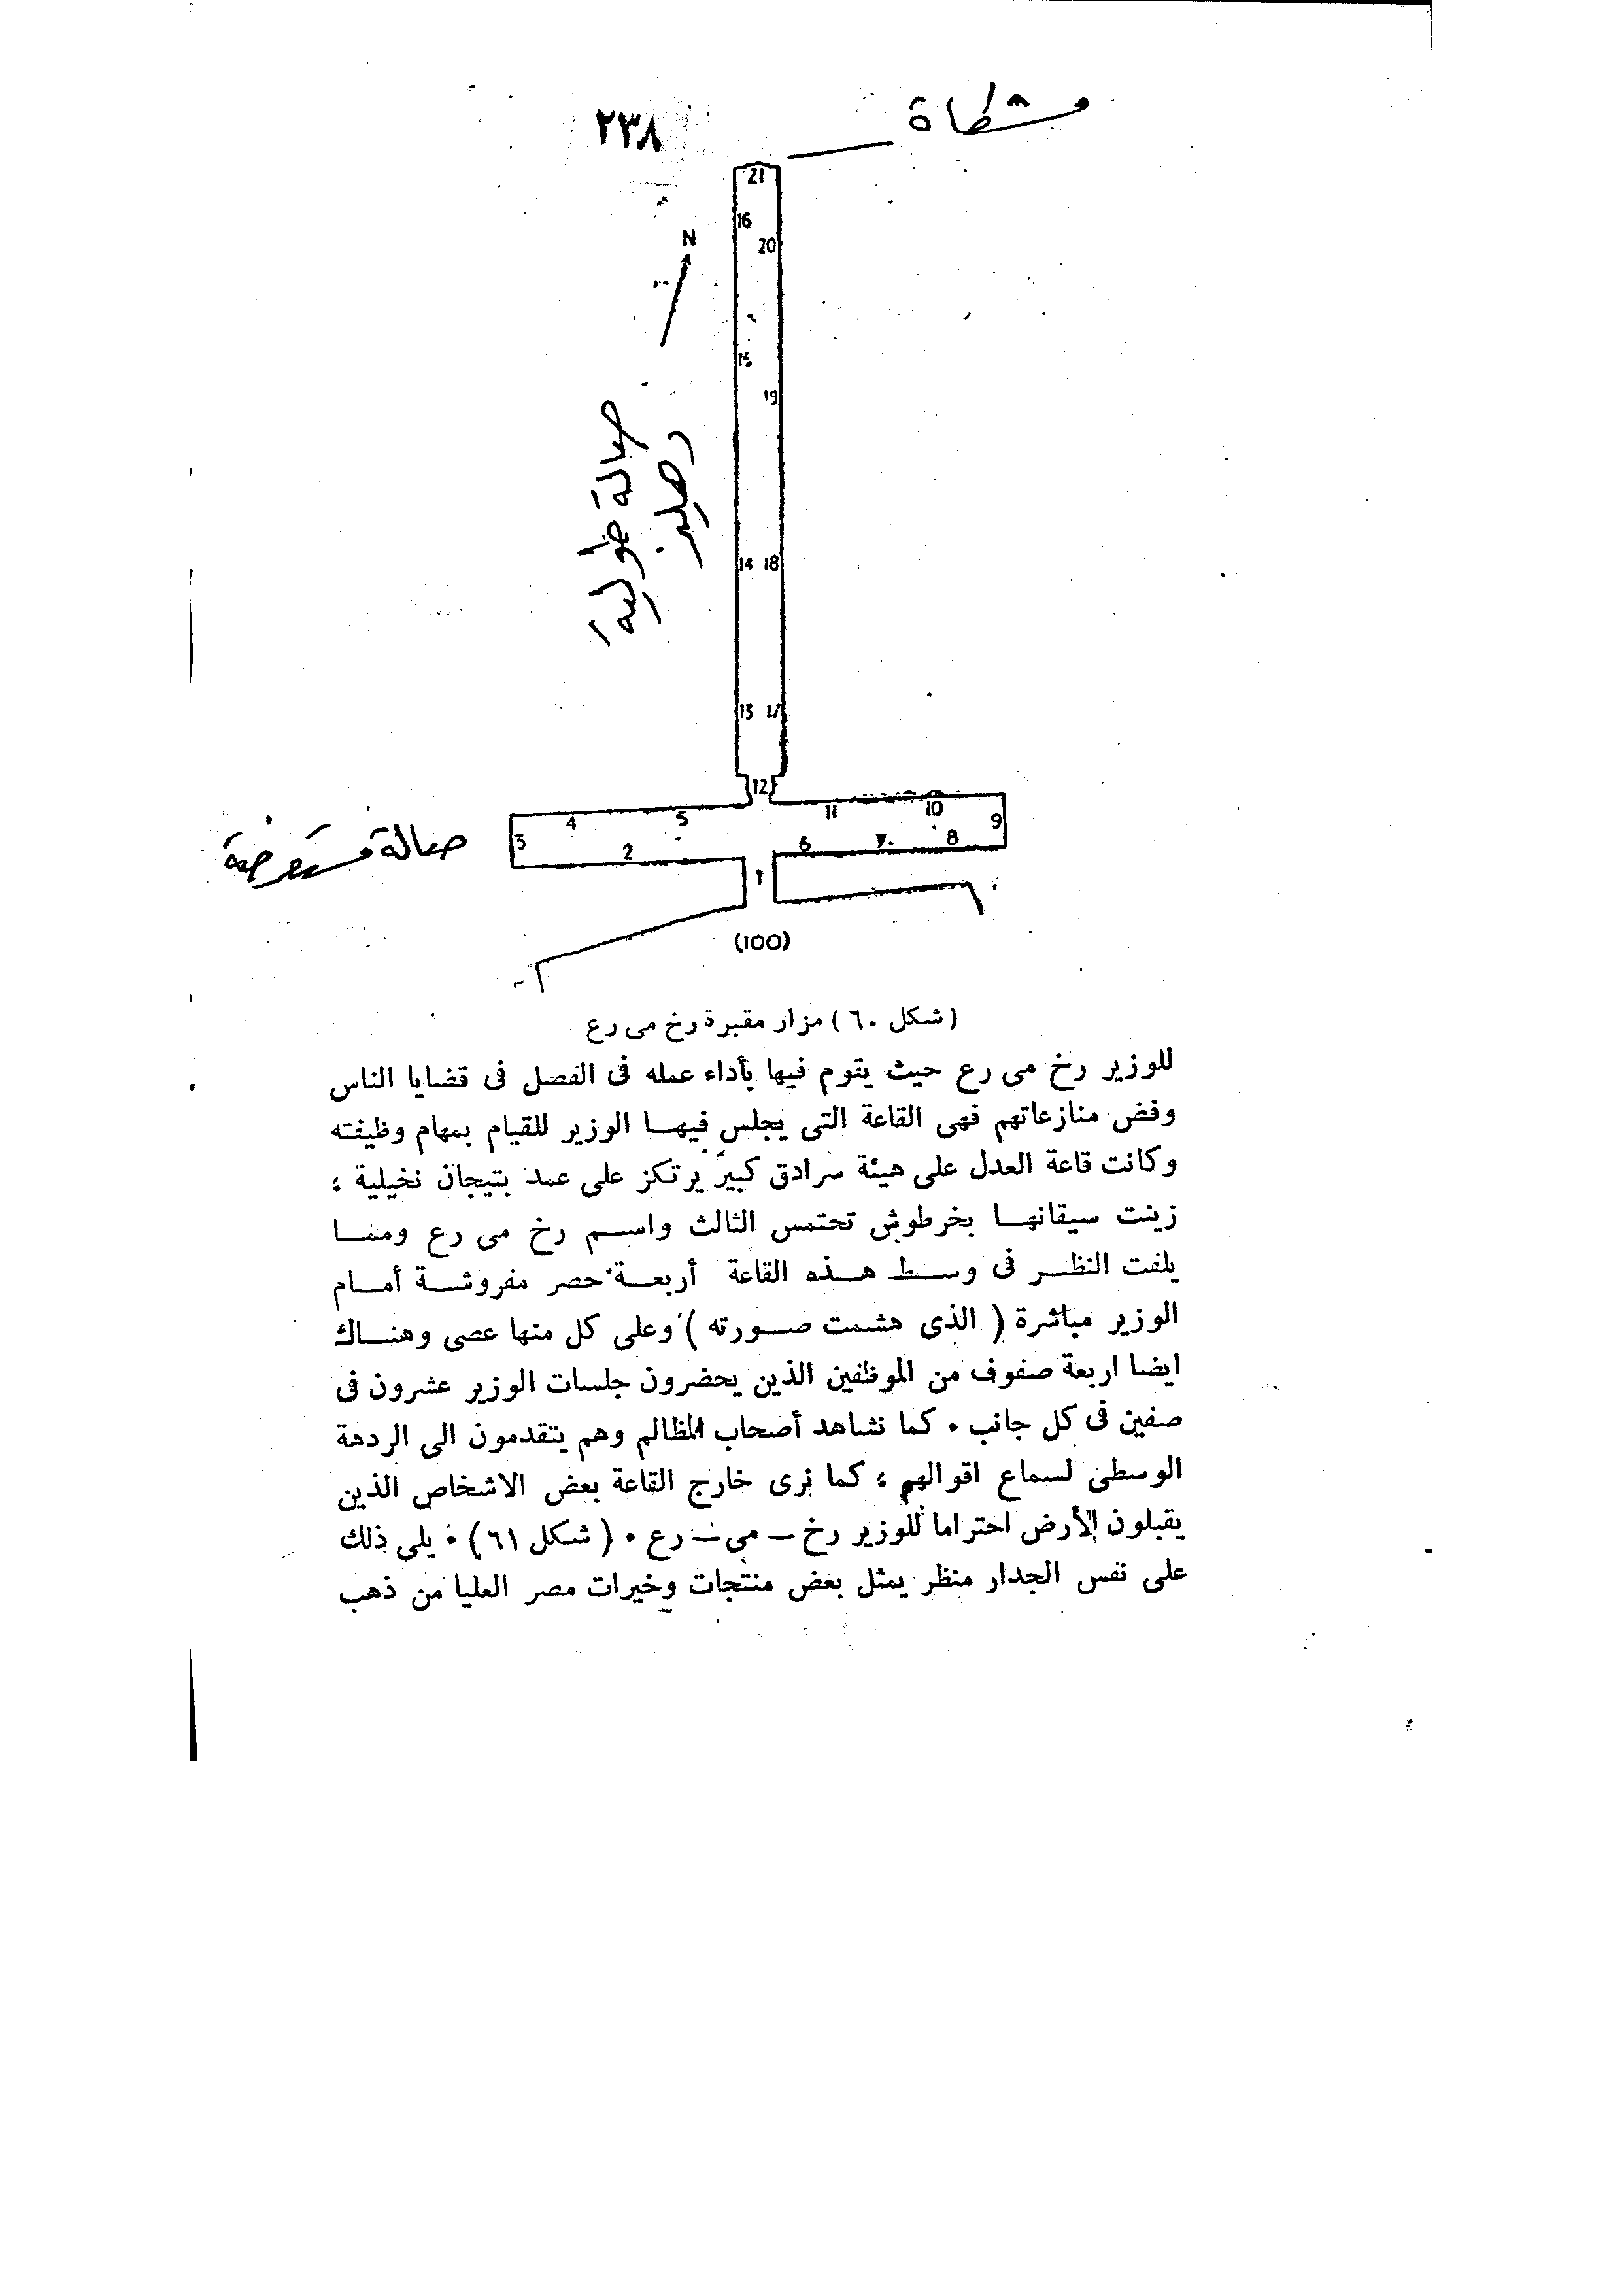 ٢٣٨
مشطاة
21
16
20
N
15
19
صالة طولية
دهليز
14 18
13 17
12
11
10
9
5
4
3
2
6
7
8
صالة مستعرضة
1
(100)
(شكل ٦٠) مزار مقبرة رخ مى رع
للوزير رخ مى رع حيث يقوم فيها بأداء عمله فى الفصل فى قضايا الناس
وفض منازعاتهم فهى القاعة التى يجلس فيهــا الوزير للقيام بمهام وظيفته
وكانت قاعة العدل على هيئة سرادق كبير يرتكز على عمد بتيجان نخيلية ؛
زينت سيقانهــا بخرطوش تحتمس الثالث واســم رخ مى رع وممــا
يلفت النظــر فى وســط هــذه القاعة أربعــة حصر مفروشــة أمــام
الوزير مباشرة ( الذى هشمت صــورته ) وعلى كل منها عصى وهنــاك
ايضا اربعة صفوف من الموظفين الذين يحضرون جلسات الوزير عشرون فى
صفين فى كل جانب ٠ كما نشاهد أصحاب المظالم وهم يتقدمون الى الردهة
الوسطى لسماع اقوالهم ؛ كما نرى خارج القاعة بعض الاشخاص الذين
يقبلون الأرض احتراما للوزير رخ – مى – رع ٠ ( شكل ٦١ ) ٠ يلى ذلك
على نفس الجدار منظر يمثل بعض منتجات وخيرات مصر العليا من ذهب